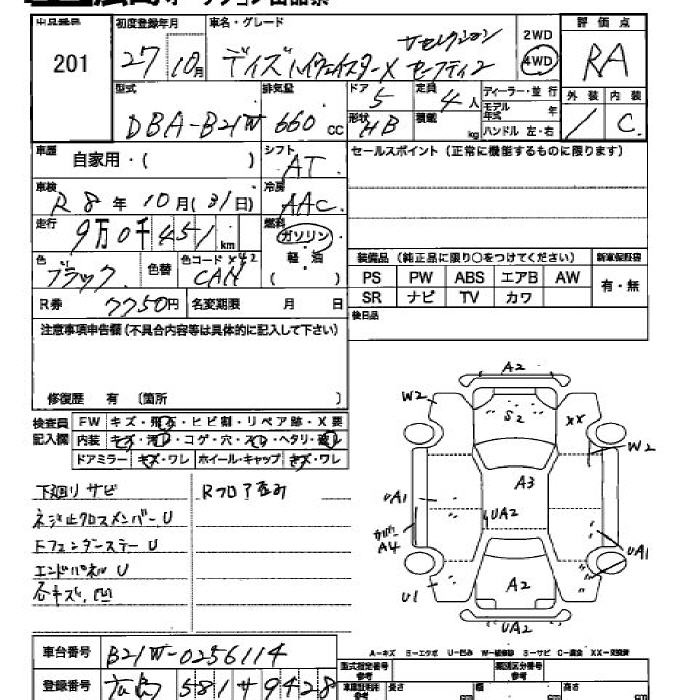 広島オークション出品票
出品番号 初度登録年月 車名・グレード 2WD 評価点
201 27 10月 デイズハイウェイスターX Vセレクション セーフティ2 4WD RA
型式 排気量 ドア 定員 ディーラー・並行 外装 内装
DBA-B21W 660 cc 5 4人 モデル年式 年
形状 HB 積載 kg ハンドル 左・右 / C.
車歴 自家用・( ) シフト AT. セールスポイント(正常に機能するものに限ります)
車検 R8年10月(31日) 冷房 AAC.
走行 9万0千451km 燃料 ガソリン
軽・油
( )
色 ブラック. 色替 色コード X42 CAH
装備品(純正品に限り○をつけてください) 新車保証書
PS PW ABS エアB AW 有・無
SR ナビ TV カワ
R券 7750円 名変期限 月 日
後日品
注意事項申告欄(不具合内容等は具体的に記入して下さい)
修復歴 有 〔箇所 〕
検査員記入欄 FW キズ・飛石・ヒビ割・リペア跡・X要
内装 キズ・汚れ・コゲ・穴・スレ・ヘタリ・破れ
ドアミラー キズ・ワレ ホイール・キャップ キズ・ワレ
下廻りサビ Rフロア歪み
ネジ止クロスメンバーU
Fフェンダーステー U
エンドパネル U
各キズ、凹
A2
W2
S2
XX
W2
A3
UA1
UA2
A4
UA1
U1
A2
UA2
A-キズ E-エクボ U-凹み W-補修跡 S-サビ C-腐食 XX-交換済
車台番号 B21W-0256114
登録番号 広島 581 サ 9428
型式指定番号 類別区分番号
長さ 幅 高さ